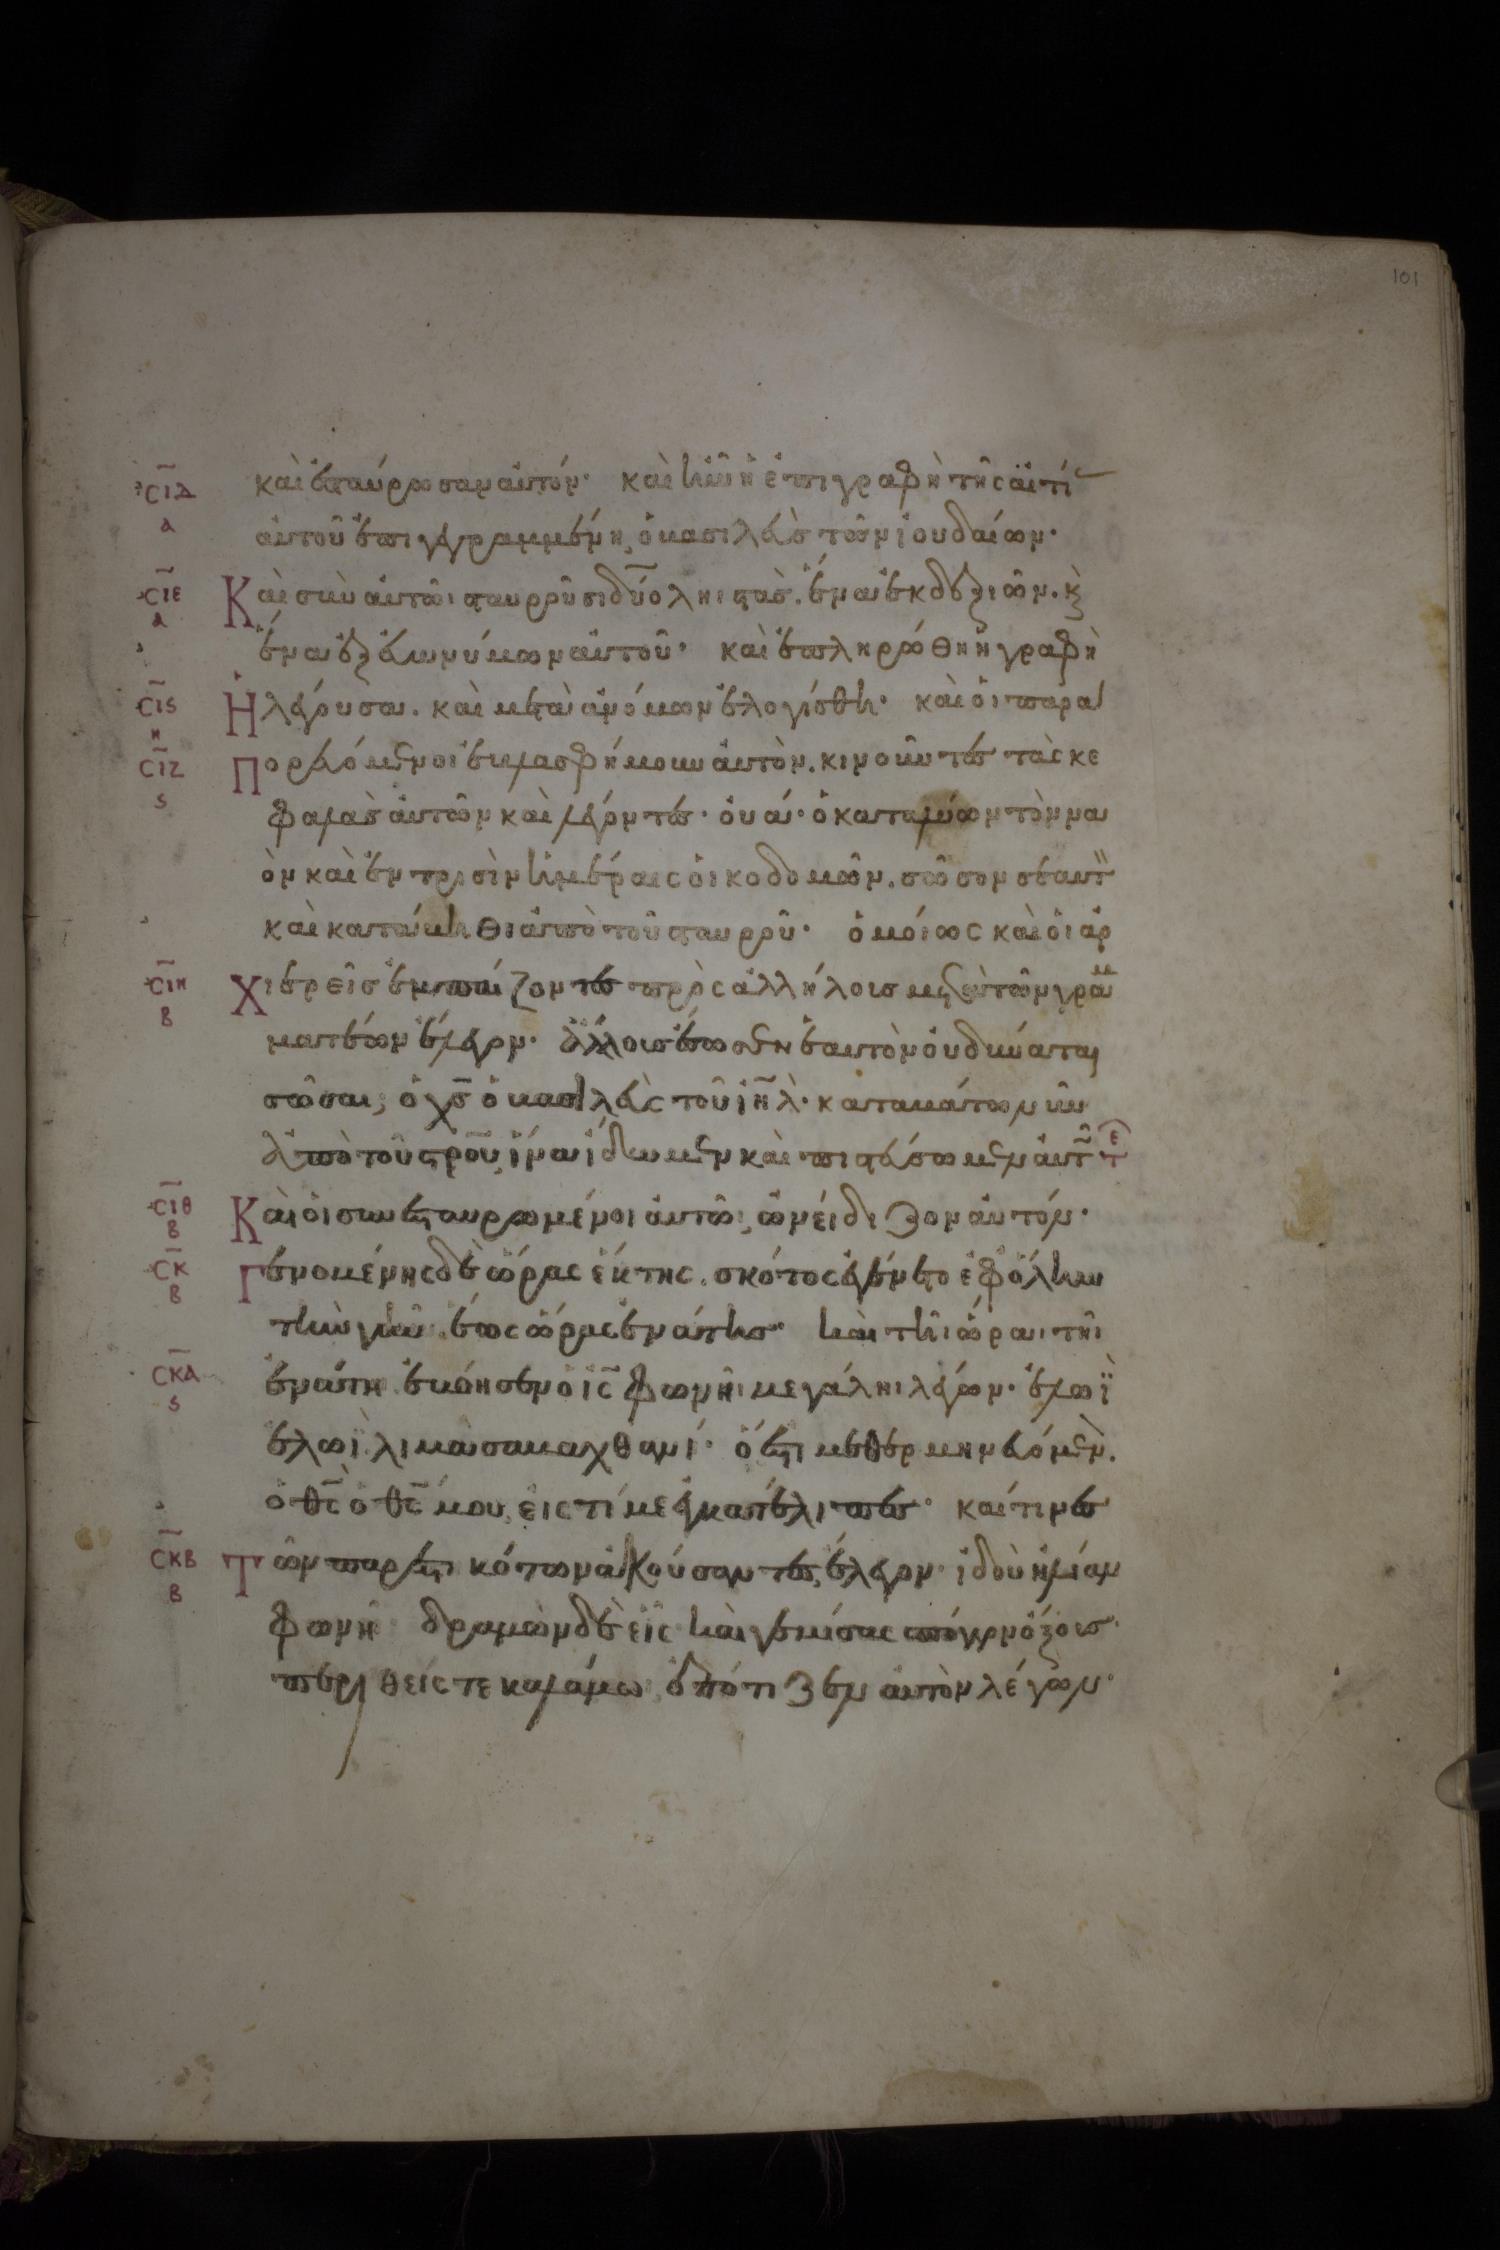 101
σιδ καὶ ἐσταύρωσαν αὐτόν· καὶ ἦν ἡ ἐπιγραφὴ τῆς αἰτί
α αὐτοῦ ἐπιγεγραμμένη, ὁ βασιλεὺς τῶν ἰουδαίων·
σιε Καὶ σὺν αὐτῶι σταυροῦσι δύο ληιστάς. ἕνα ἐκ δεξιῶν. κ̀
α ἕνα ἐξ εὐωνύμων αὐτοῦ· καὶ ἐπληρώθη ἡ γραφὴ
σις Ἡ λέγουσα. καὶ μετὰ ἀνόμων ἐλογίσθη· καὶ οἱ παρα
η
σιζ Πορευόμενοι ἐβλασφήμουν αὐτὸν. κινοῦντες τὰς κε
ς φαλὰς αὐτῶν καὶ λέγοντες· οὐά· ὁ καταλύων τὸν να
ὸν καὶ ἐν τρισὶν ἡμέραις οἰκοδομῶν. σῶσον σεαυτ
καὶ κατάβηθι ἀπὸ τοῦ σταυροῦ· ὁμοίως καὶ οἱ ἀρ
σιη Χιερεῖς ἐμπαίζοντες πρὸς ἀλλήλους μετὰ τῶν γραμ
β ματέων ἔλεγον· ἄλλους ἔσωσεν ἑαυτὸν οὐ δύναται
σῶσαι, ὁ χς ὁ βασιλεὺς τοῦ ιηλ· καταβάτω νῦν
ἀπὸ τοῦ στροῦ, ἵνα ἴδωμεν καὶ πιστεύσωμεν αὐτ
σιθ Καὶ οἱ συνεσταυρωμένοι αὐτῶ, ὠνείδιζον αὐτόν·
β
σκ Γενομένης δὲ ὥρας ἕκτης. σκότος ἐγένετο ἐφ' ὅλην
β τὴν γῆν ἕως ὥρας ἐνάτης· καὶ τῆι ὥραι τῆι
σκα ἐνάτη ἐβόησεν ὁ ις φωνῆι μεγάληι λέγων· ἐλωῒ
ς ἐλωῒ λιμὰ σαβαχθανί· ὅ ἐστι μεθερμηνευόμεν.
ὁ θς ὁ θς μου, εἰς τί με ἐγκατέλιπες· καί τινες
σκβ Τῶν παρεστηκότων ἀκούσαντες, ἔλεγον· ἰδοὺ ἠλίαν
β φωνεῖ δραμὼν δὲ εἷς καὶ γεμίσας σπόγγον ὄξους
περιθείς τε καλάμω, ἐπότιζεν αὐτὸν λέγων·